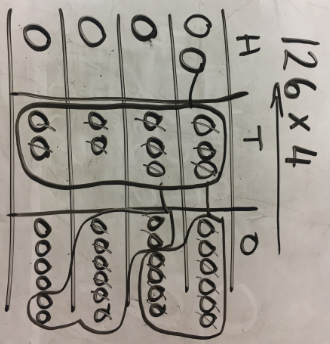 126 × 4
H T O